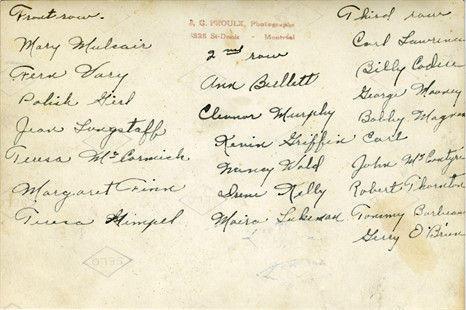 Front row.
Mary Mulcair
Fern Dary
Polish Girl
Jean Longstaff
Teresa McCormick
Margaret Finn
Teresa Himpel
J. G. PROULX, Photographe
St-Denis - Montréal
2nd row
Ann Bullett
Eleanor Murphy
Kevin Griffin
Nancy Wald
Irene Kelly
Moira Lukeman
Third row
Carl Lawrence
Billy
George Mooney
Bobby Magnan
Carl
John McIntyre
Robert Thornton
Tommy Barbeau
Gerry O'Brien
CELO